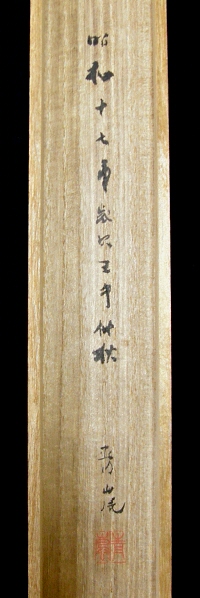 昭和十七年歳次壬午仲秋